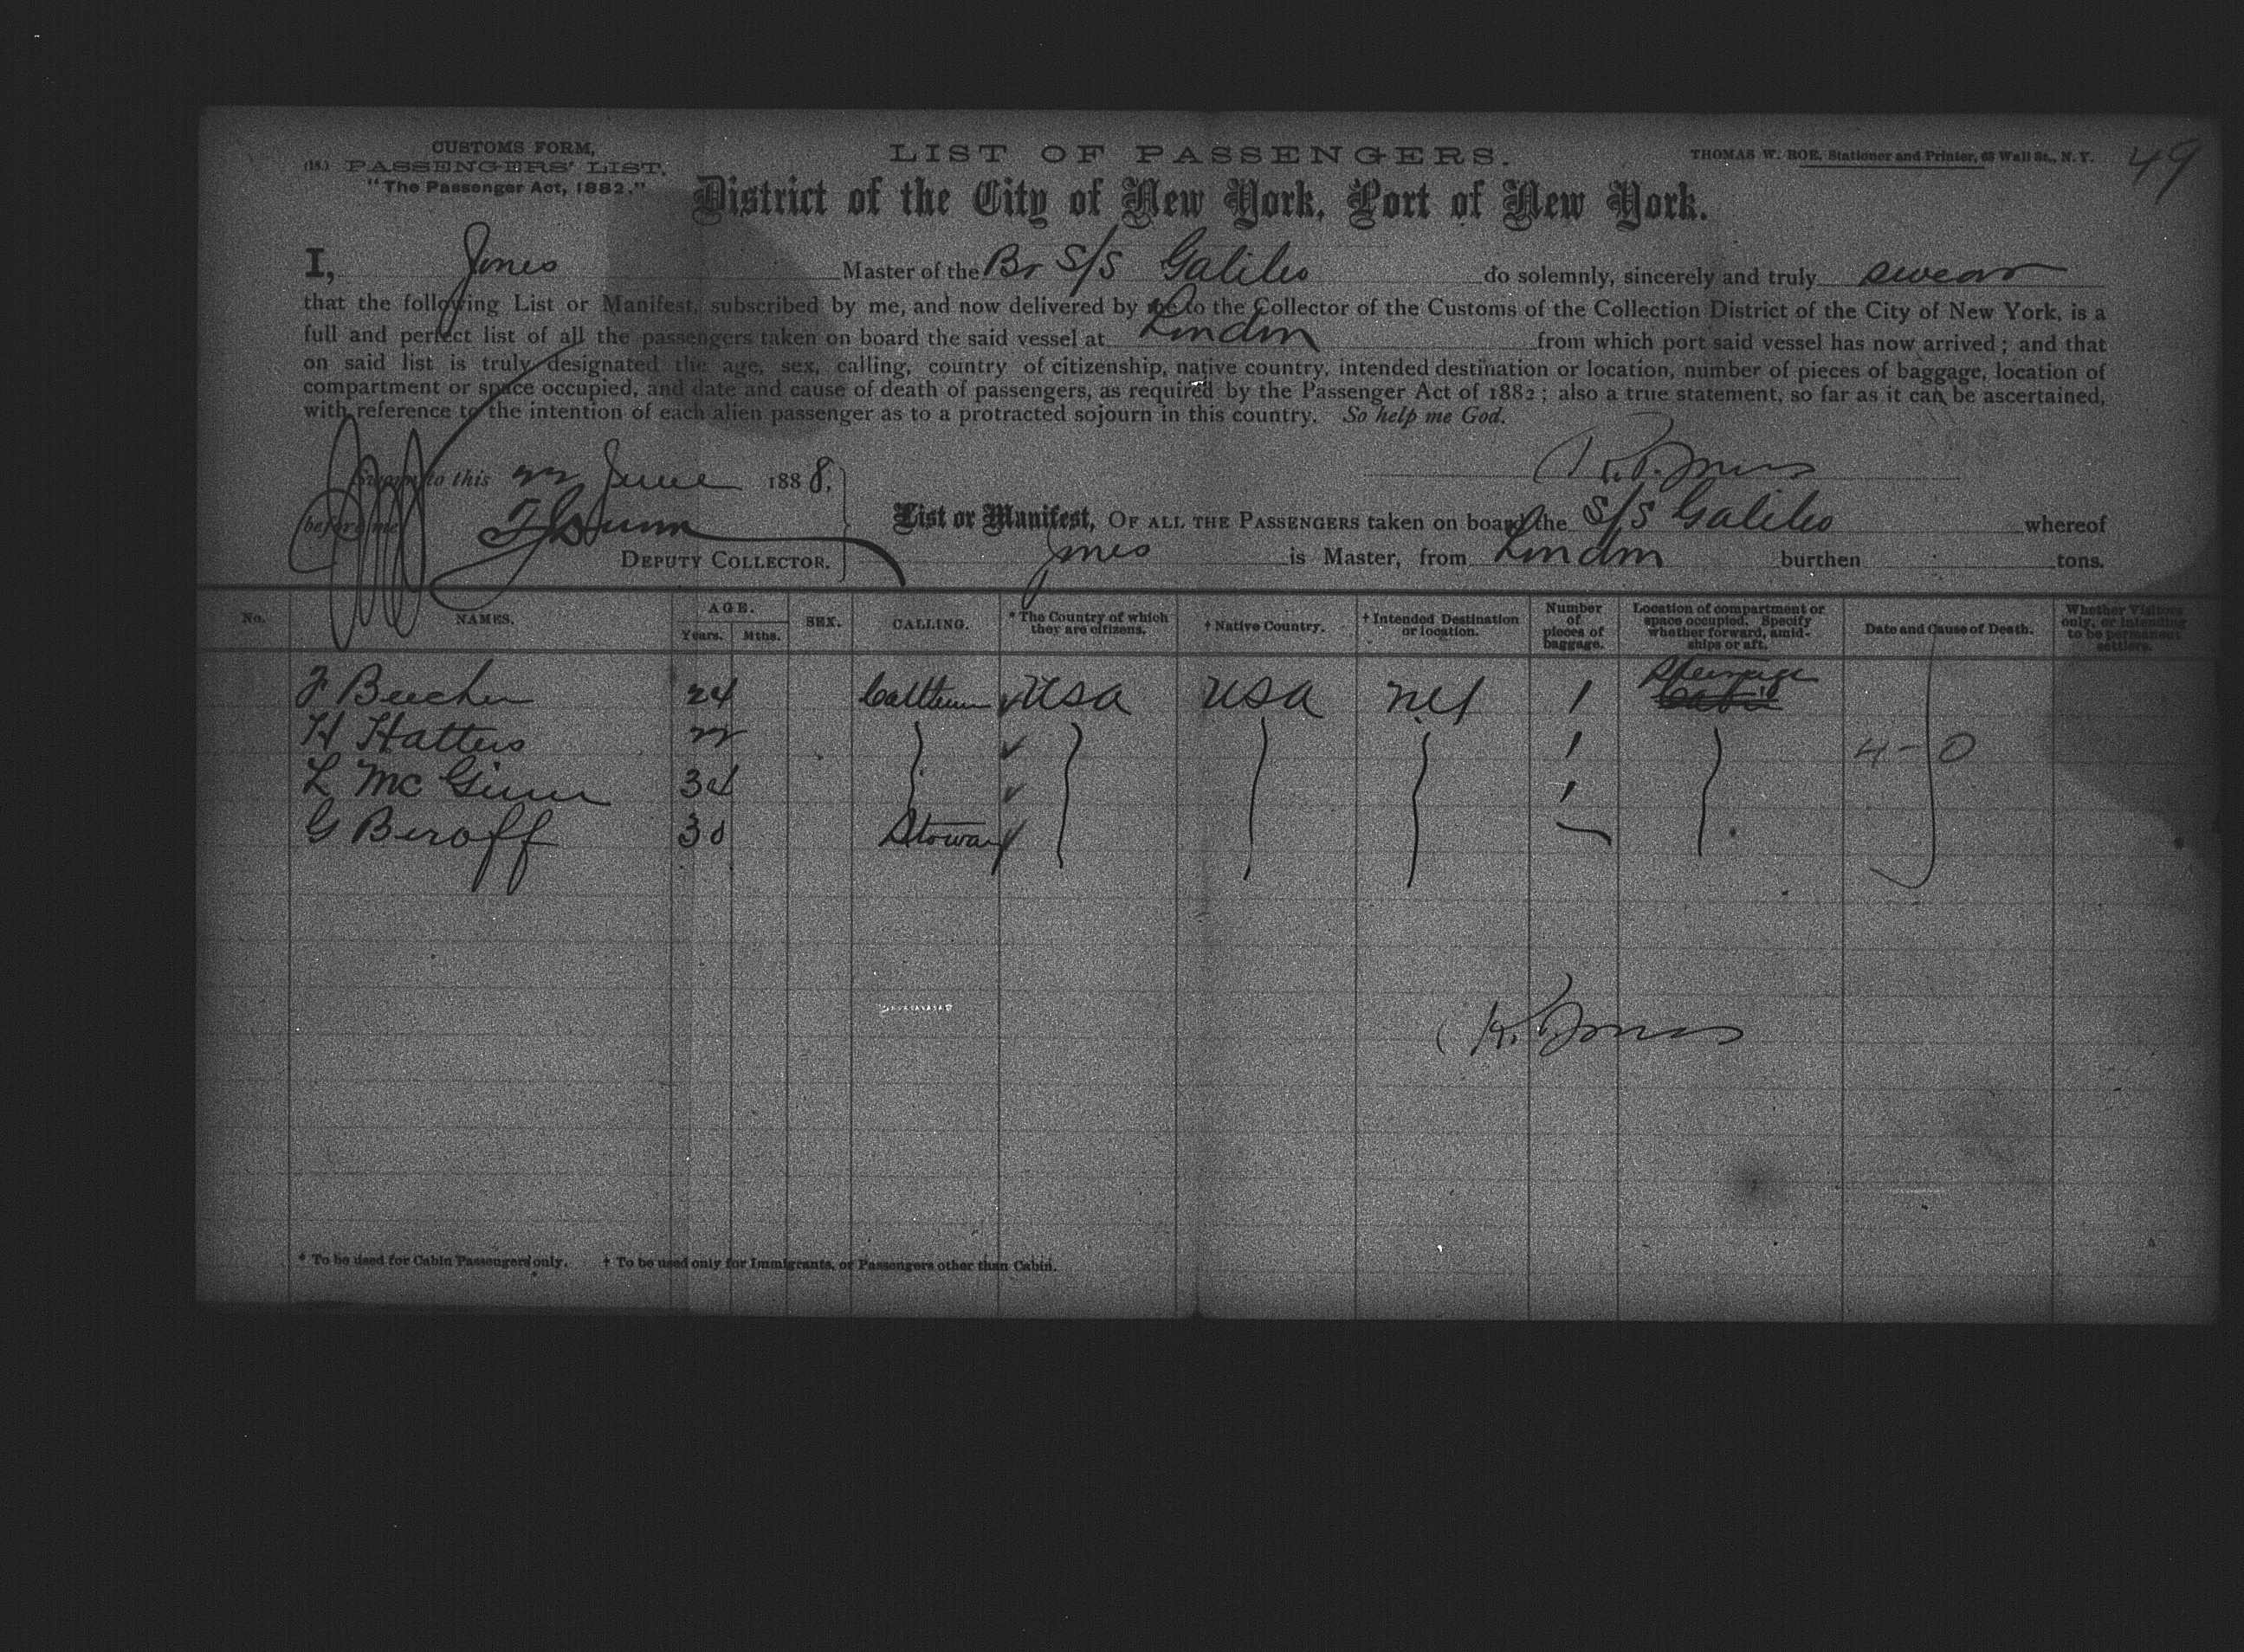 CUSTOMS FORM,
(18.) PASSENGERS' LIST.
"The Passenger Act, 1882."
LIST OF PASSENGERS.
THOMAS W. ROE, Stationer and Printer, 63 Wall St., N. Y.
49
District of the City of New York, Port of New York.
I, Jones Master of the Br S/S Galileo do solemnly, sincerely and truly swear
that the following List or Manifest, subscribed by me, and now delivered by me to the Collector of the Customs of the Collection District of the City of New York, is a
full and perfect list of all the passengers taken on board the said vessel at London from which port said vessel has now arrived; and that
on said list is truly designated the age, sex, calling, country of citizenship, native country, intended destination or location, number of pieces of baggage, location of
compartment or space occupied, and date and cause of death of passengers, as required by the Passenger Act of 1882; also a true statement, so far as it can be ascertained,
with reference to the intention of each alien passenger as to a protracted sojourn in this country. So help me God.
Sworn to this 22 June 1888,
before me
DEPUTY COLLECTOR.
Jones
List or Manifest, OF ALL THE PASSENGERS taken on board the S/S Galileo whereof
Jones is Master, from London burthen tons.
No. NAMES. AGE. Years. Mths. SEX. CALLING. * The Country of which they are citizens. † Native Country. † Intended Destination or location. Number of pieces of baggage. Location of compartment or space occupied. Specify whether forward, amidships or aft. Date and Cause of Death. Whether Visitors only, or intending to be permanent settlers.
F Beecher 24 Cattlemen USA USA NY 1 Steerage
H Hatters 22 1 4-0
L McGinn 34 1
G Beroff 30 Stoway
Jones
* To be used for Cabin Passengers only. † To be used only for Immigrants, or Passengers other than Cabin.